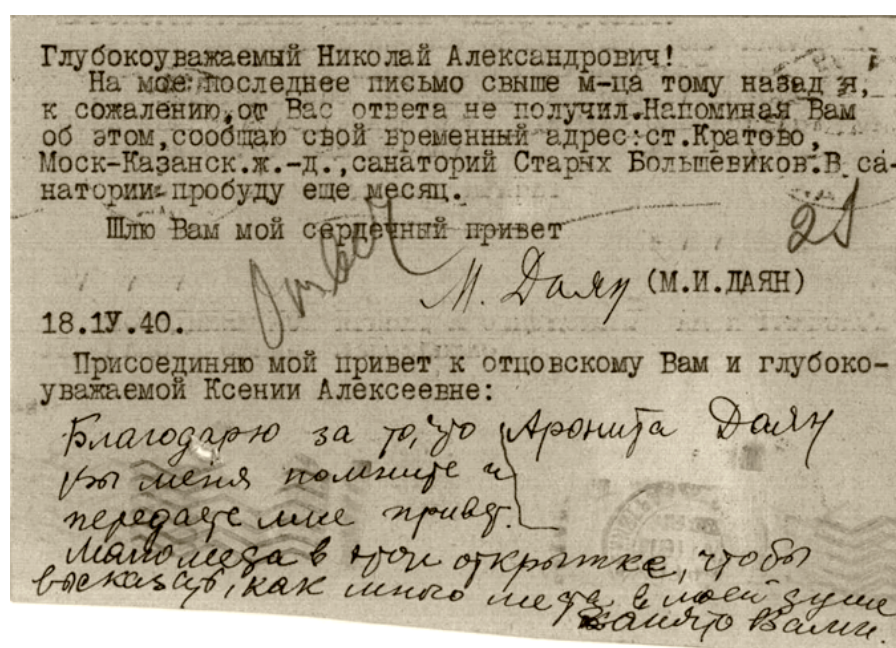 Глубокоуважаемый Николай Александрович!
На мое последнее письмо свыше м-ца тому назад я,
к сожалению,от Вас ответа не получил.Напоминая Вам
об этом,сообщаю свой временный адрес:ст.Кратово,
Моск-Казанск.ж.-д.,санаторий Старых Большевиков.В са-
натории пробуду еще месяц.
Шлю Вам мой сердечный привет
М. Даян (М.И.ДАЯН)
18.1У.40.
Присоединяю мой привет к отцовскому Вам и глубоко-
уважаемой Ксении Алексеевне:
Благодарю за то, что Аронита Даян
Вы меня помните и
передаете мне привет.
Мало места в этой открытке, чтобы
высказать, как много места в моей душе
занято Вами.